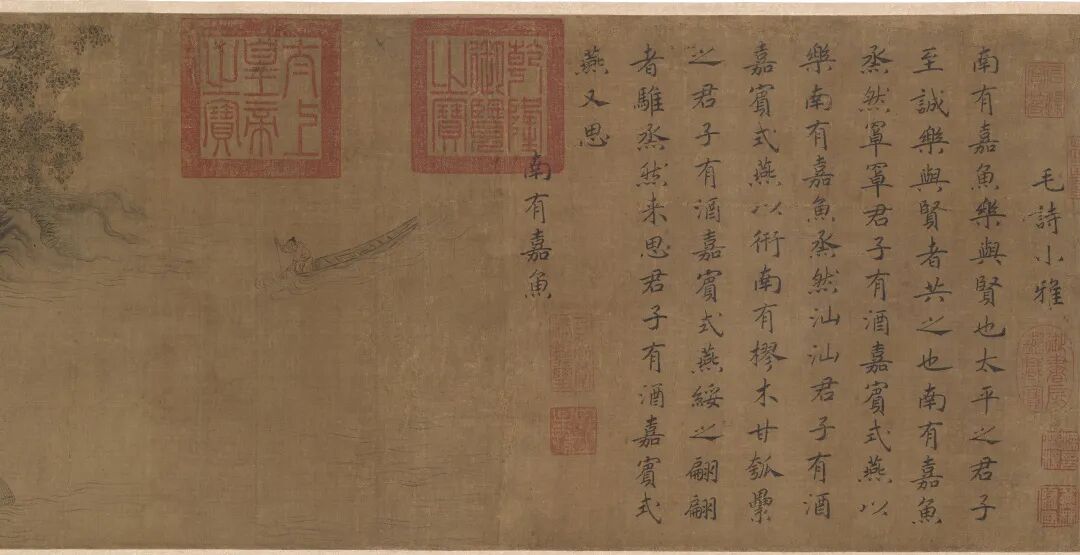 毛詩小雅
南有嘉魚樂與賢也太平之君子
至誠樂與賢者共之也南有嘉魚
烝然罩罩君子有酒嘉賓式燕以
樂南有嘉魚烝然汕汕君子有酒
嘉賓式燕以衎南有樛木甘瓠纍
之君子有酒嘉賓式燕綏之翩翩
者鵻烝然来思君子有酒嘉賓式
燕又思
南有嘉魚
乾隆御覽之寶
太上皇帝之寶